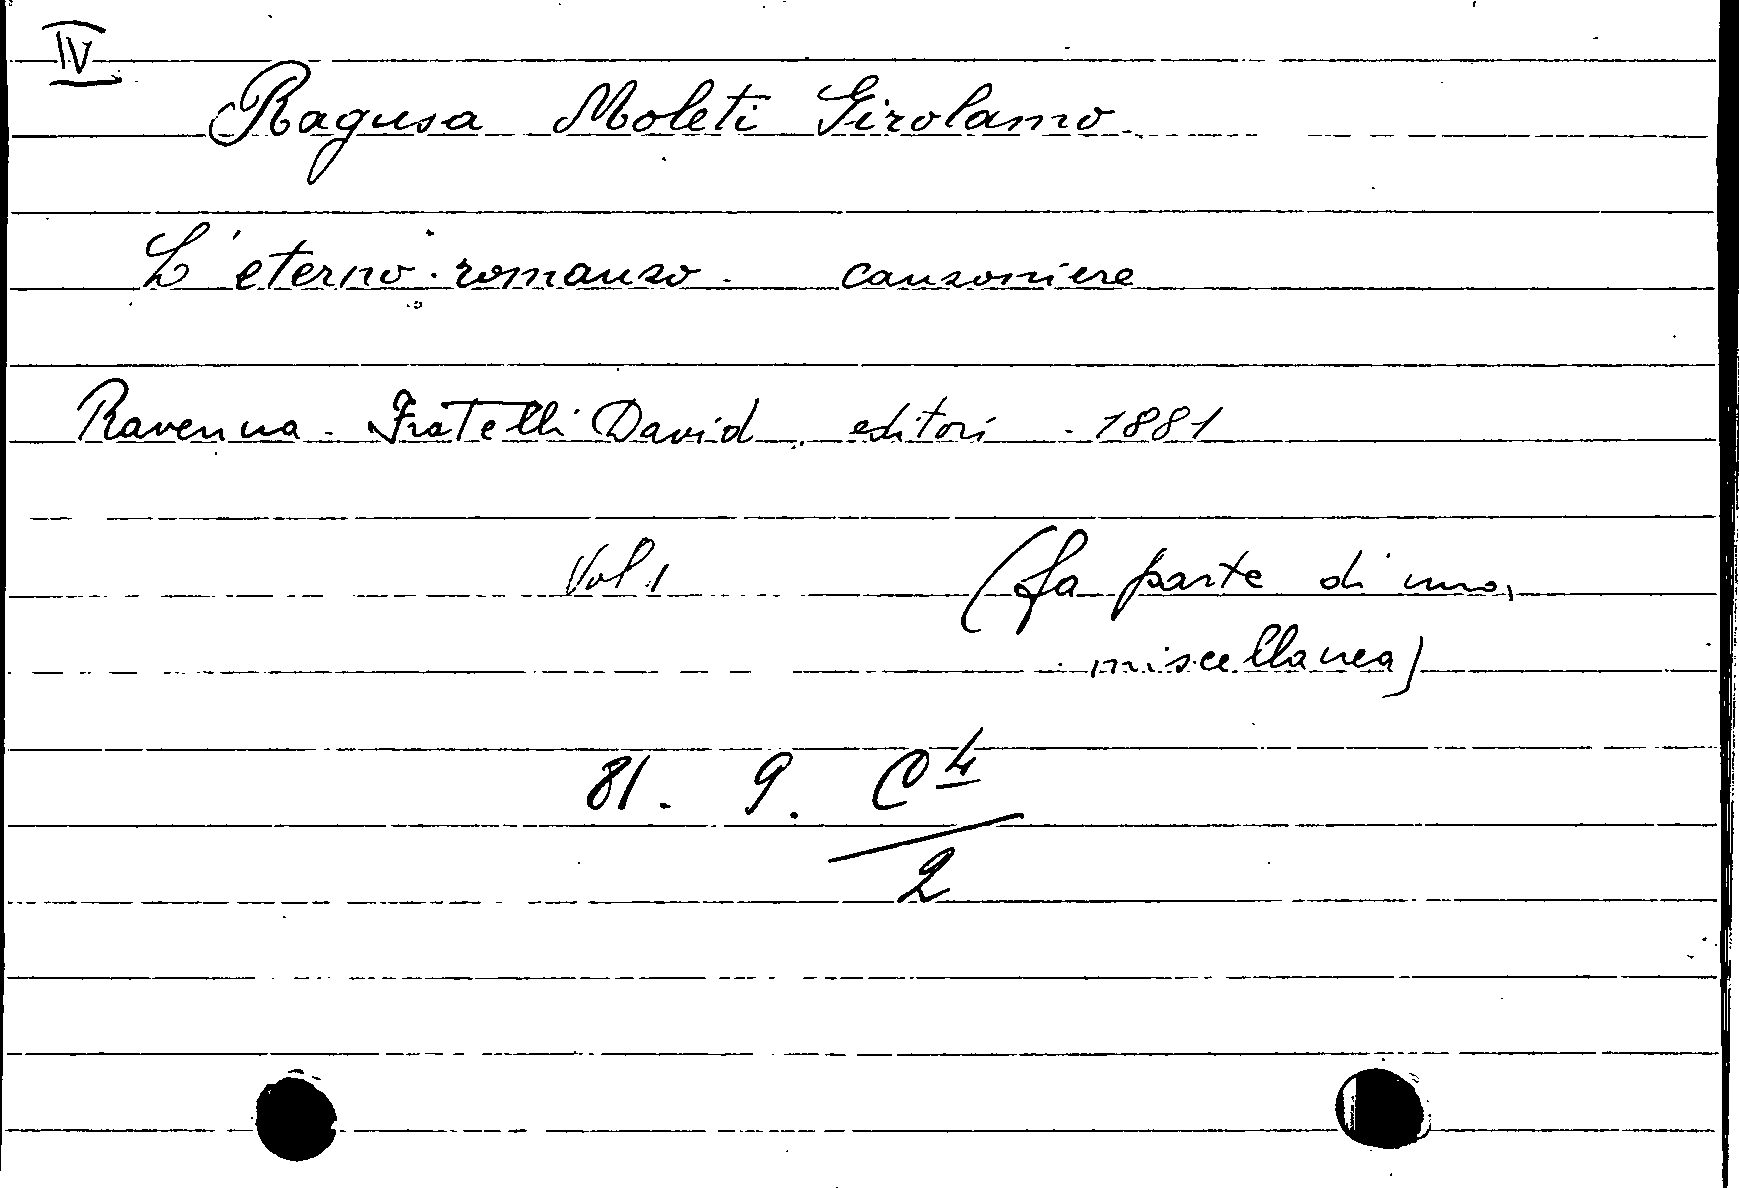 IV
Ragusa Moleti Girolamo
L'eterno romanzo - canzoniere
Ravenna - Fratelli David, editori - 1881
Vol. 1 (fa parte di una
miscellanea)
81. 9. C 4
2